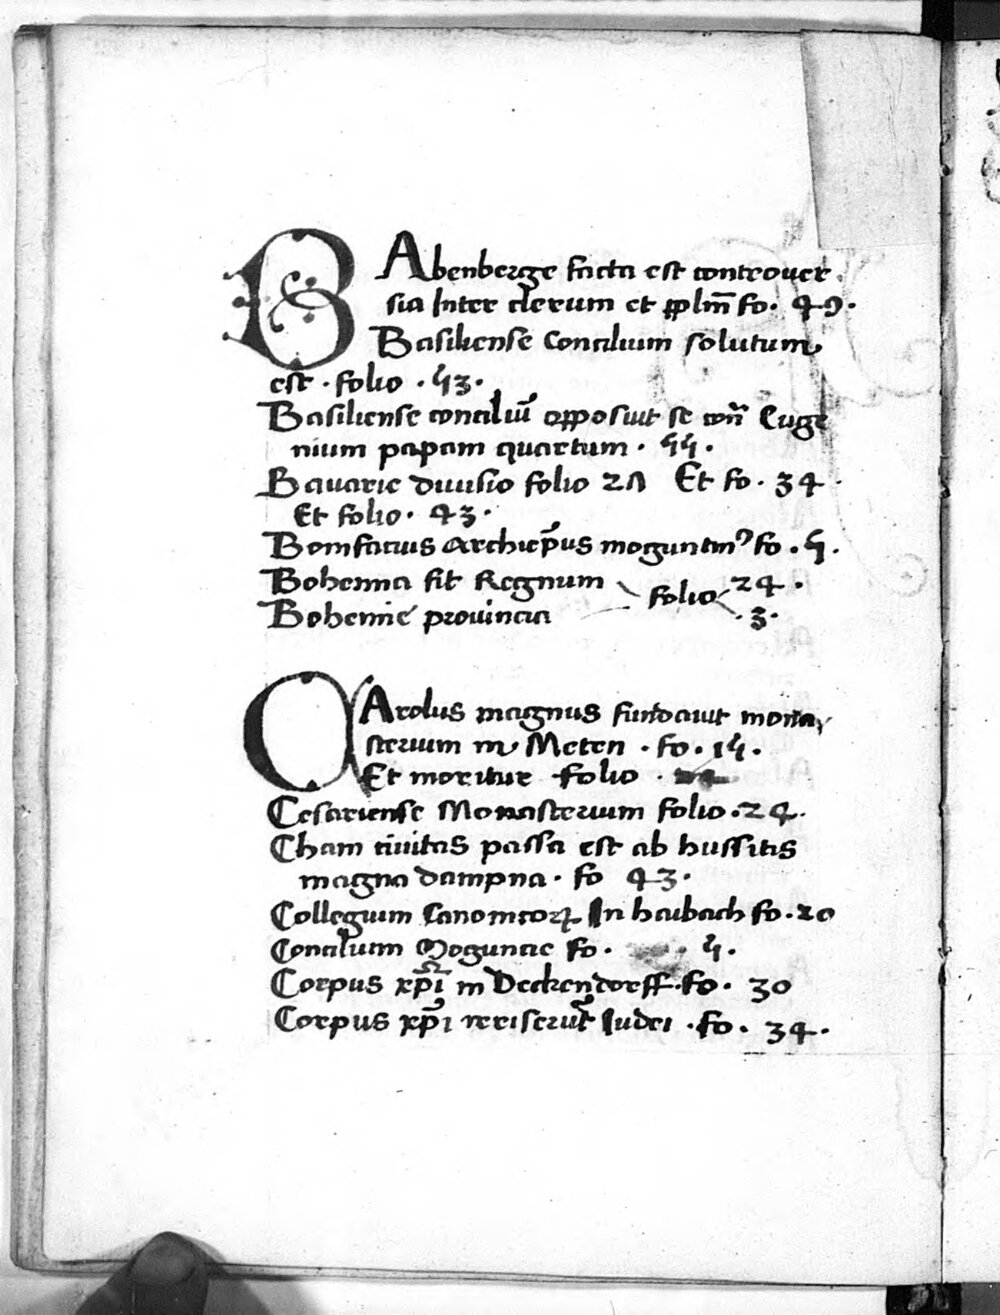 BAbenberge facta est controuer
sia Inter clerum et pplm̄ fo. 49.
Basiliense Concilium solutum
est . folio . 53.
Basiliense conciliū opposuit se con̄ Euge
nium papam quartum . 55.
Bauarie diuisio folio 27 Et fo. 34.
Et folio. 43.
Bonifacius Archiep̄us moguntinꝰ fo. 5.
Bohemia fit Regnum folio 24.
Bohemie prouincia . 3.
CArolus magnus fundauit mona
sterium in Meten . fo. 15.
Et moritur folio .
Cesariense Monasterium folio. 24.
Cham ciuitas passa est ab hussitis
magna dampna . fo 43.
Collegium Canonicoꝝ In haibach fo. 20
Concilium Moguncie fo. 5.
Corpus xp̄i in Deckendorff. fo. 30
Corpus xp̄i reiserūt Iudei . fo. 34.